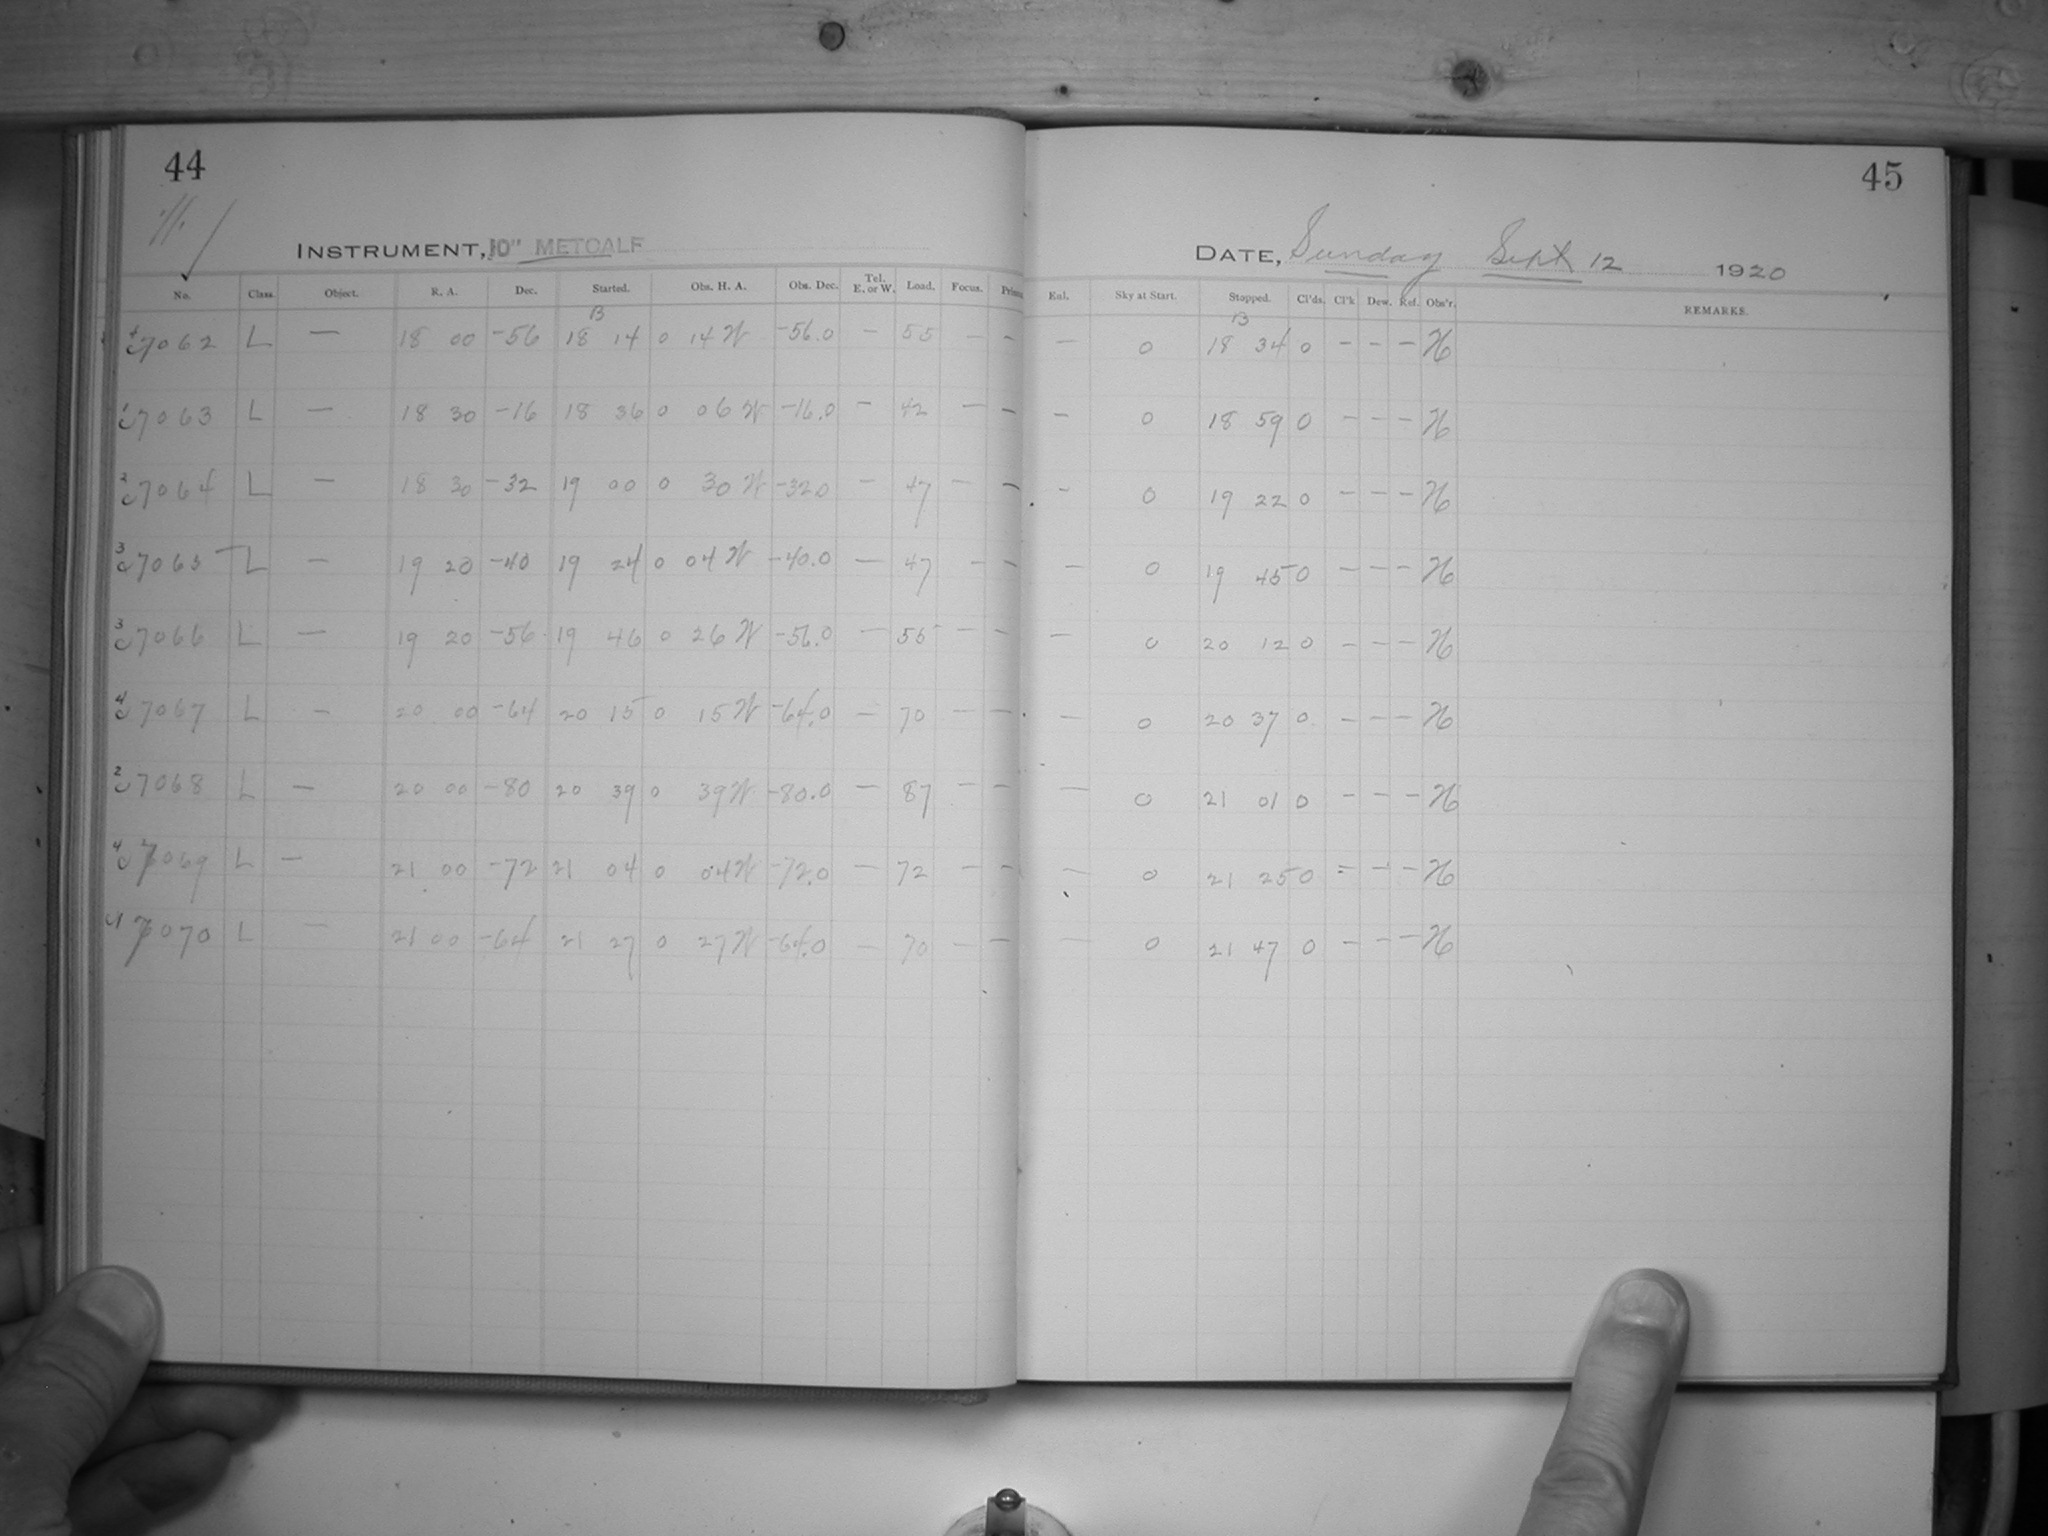 44
INSTRUMENT, 10" METCALF
No. Class. Object. R. A. Dec. Started. Obs. H. A. Obs. Dec. Tel. E. or W. Load. Focus.
B
7062 L — 18 00 -56 18 14 0 14 W -56.0 — 55 — —
7063 L — 18 30 -16 18 36 0 06 W -16.0 — 42 — —
7064 L — 18 30 -32 19 00 0 30 W -32.0 — 47 — —
7065 L — 19 20 -40 19 24 0 04 W -40.0 — 47 — —
7066 L — 19 20 -56 19 46 0 26 W -56.0 — 55 — —
7067 L — 20 00 -64 20 15 0 15 W -64.0 — 70 — —
7068 L — 20 00 -80 20 39 0 39 W -80.0 — 87 — —
7069 L — 21 00 -72 21 04 0 04 W -72.0 — 72 — —
7070 L — 21 00 -64 21 27 0 27 W -64.0 — 70 — —
45
DATE, Sunday Sept 12 1920
Enl. Sky at Start. Stopped. Cl'ds. Cl'k Dew. Ref. Obs'r. REMARKS.
B
— 0 18 34 0 — — — H
— 0 18 59 0 — — — H
— 0 19 22 0 — — — H
— 0 19 45 0 — — — H
— 0 20 12 0 — — — H
— 0 20 37 0 — — — H
— 0 21 01 0 — — — H
— 0 21 25 0 = — — H
— 0 21 47 0 — — — H